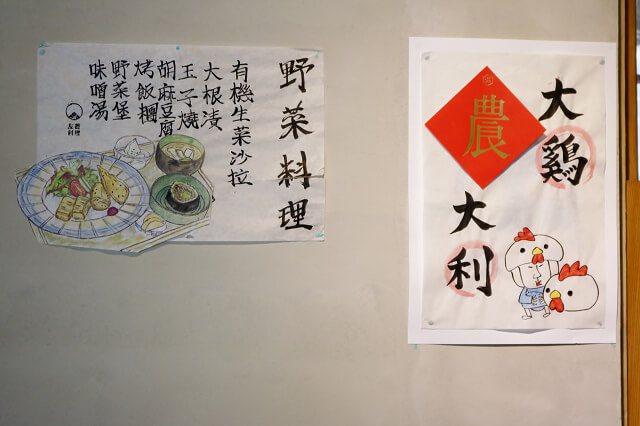 野菜料理
有機生菜沙拉
大根漬
玉子燒
胡麻豆腐
烤飯糰
野菜堡
味噌湯
大鶏
農
大利